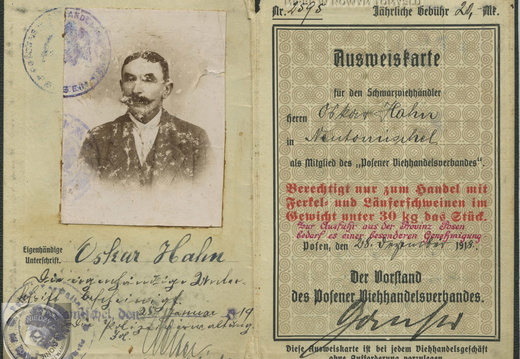 Nr. 2578 Jährliche Gebühr 20,-Mk.
Ausweiskarte
für den Schwarzviehhändler
Herrn Oskar Hahn
in Neutomischel
als Mitglied des „Posener Viehhandelsverbandes".
Berechtigt nur zum Handel mit
Ferkel- und Läuferschweinen im
Gewicht unter 30 kg das Stück.
Zur Ausfuhr aus der Provinz Posen
bedarf es einer besonderen Genehmigung
Posen, den 28. Dezember
Der Vorstand
des Posener Viehhandelsverbandes.
Diese Ausweiskarte ist bei jedem Viehhandelsgeschäft
ohne Aufforderung vorzulegen
Eigenhändige
Unterschrift.
Oskar Hahn
Die eigenhändige Unter-
schrift bescheinigt
Januar 19
Polizeiverwaltung